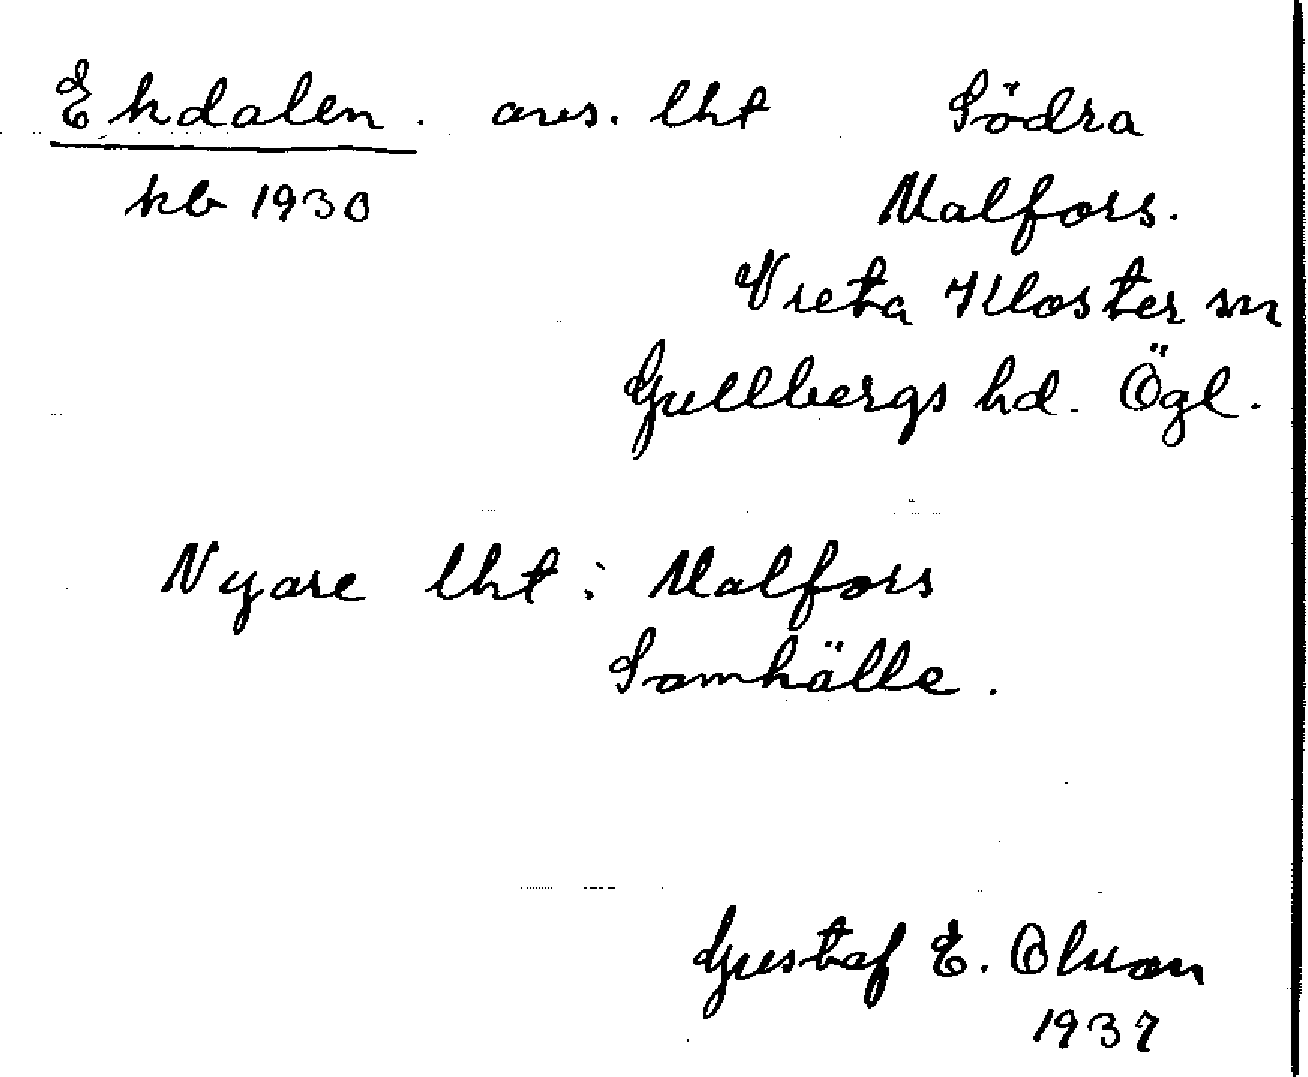 Ekdalen. avs. lht Södra
kb 1930 Malfors.
Vreta Kloster sn
Gullbergs hd. Ögl.
Nyare lht: Malfors
Samhälle.
Gustaf E. Olsson
1937